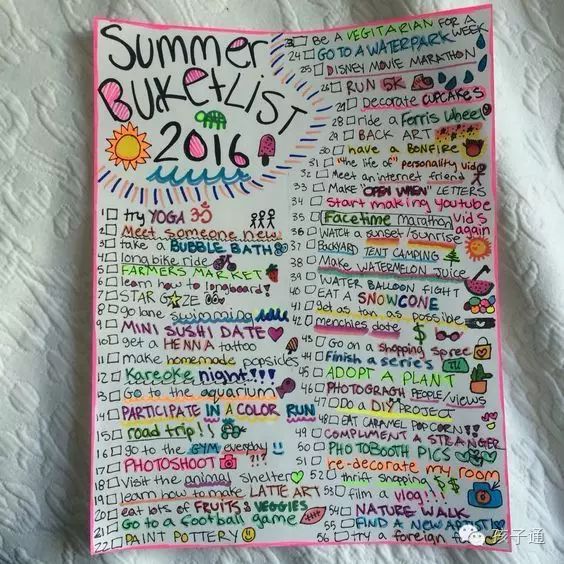 SUMMER
BUKEt LIST
2016
1 try YOGA ॐ
2 Meet someone new
3 take a BUBBLE BATH
4 long bike ride
5 FARMERS MARKET
6 learn how to longboard!
7 STAR GAZE
8 go lane swimming
9 MINI SUSHI DATE
10 get a HENNA tattoo
11 make homemade popsicles
12 Kareoke night!!!
13 Go to the aquarium
14 PARTICIPATE IN A COLOR RUN
15 road trip!!
16 go to the GYM everyday
17 PHOTOSHOOT !!!
18 Visit the animal shelter
19 learn how to make LATTE ART
20 eat lots of FRUITS & VEGGIES
21 Go to a football game
22 PAINT POTTERY
23 Be a VEGITARIAN FOR A WEEK
24 GO TO A WATERPARK
25 DISNEY MOVIE MARATHON
26 RUN 5K
27 Decorate CUPCAKES
28 ride a Ferris Wheel
29 BACK ART
30 have a BONFIRE
31 "the life of" personality vid
32 Meet an internet friend
33 Make "OPEN WHEN" LETTERS
34 start making youtube vids again
35 Facetime marathon
36 WATCH a sunset/sunrise
37 BACKYARD TENT CAMPING
38 Make WATERMELON JUICE
39 WATER BALLOON FIGHT
40 EAT A SNOWCONE
41 get as tan as possible
42 menchies date
43 Go on a shopping spree
44 Finish a series
45 ADOPT A PLANT
46 PHOTOGRAGH PEOPLE/VIEWS
47 Do a DIY PROJECT
48 EAT CARAMEL POPCORN!!
49 COMPLIMENT A STRANGER
50 PHOTOBOOTH PICS
51 re-decorate my room
52 thrift shopping $$
53 film a vlog!!!
54 NATURE WALK
55 FIND A NEW ARTIST
56 TRY a foreign
孩子通